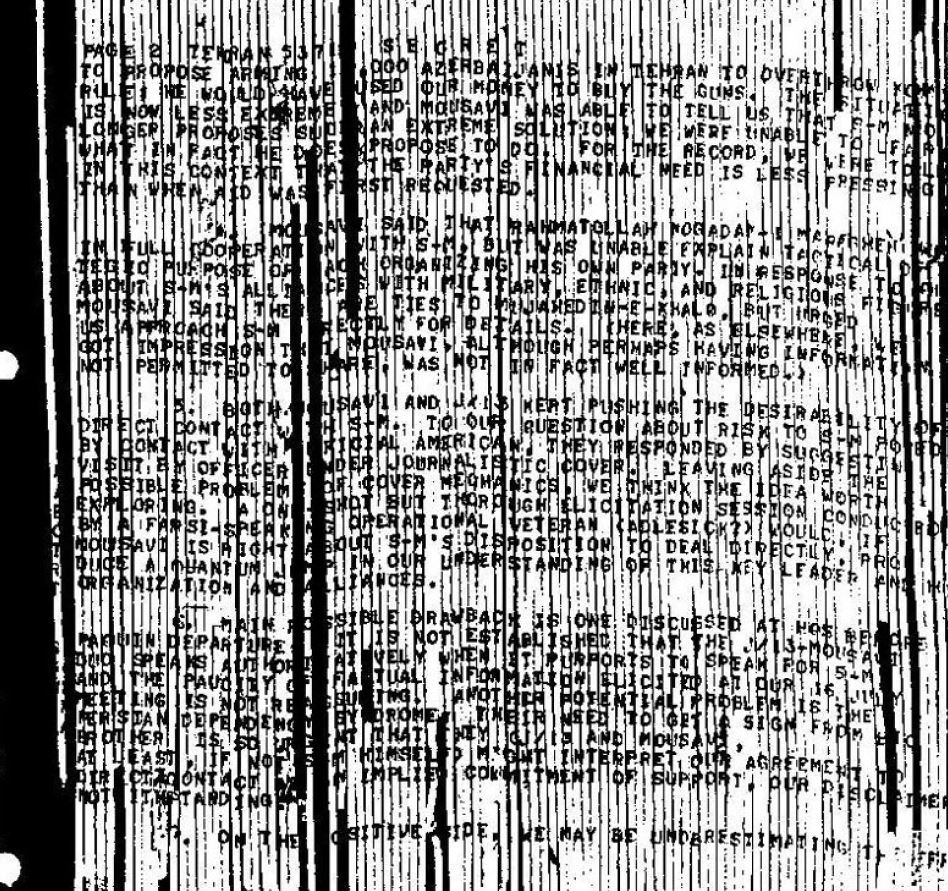 PAGE 2 TEHRAN 537 S E C R E T
TO PROPOSE ARMING 000 AZERBAIJANIS IN TEHRAN TO OVERTHROW
RULE; HE WOULD HAVE USED OUR MONEY TO BUY THE GUNS. THE
IS NOW LESS EXTREME AND MOUSAVI WAS ABLE TO TELL US THAT S-M NO
LONGER PROPOSES SUCH AN EXTREME SOLUTION; WE WERE UNABLE TO
WHAT IN FACT HE DOES PROPOSE TO DO. FOR THE RECORD, WE WERE TOLD
IN THIS CONTEXT THAT THE PARTY'S FINANCIAL NEED IS LESS PRESSING
THAN WHEN AID WAS FIRST REQUESTED.
4. MOUSAVI SAID THAT RAHMATOLLAH MOGADAM-
IN FULL COOPERATION WITH S-M, BUT WAS UNABLE EXPLAIN TACTICAL
PURPOSE OF EACH ORGANIZING HIS OWN PARTY. IN RESPONSE TO
ABOUT S-M'S ALLIANCES WITH MILITARY, ETHNIC, AND RELIGIOUS
MOUSAVI SAID THERE ARE TIES TO MUJAHEDIN-E-KHALQ, BUT URGED
US APPROACH S-M DIRECTLY FOR DETAILS. (HERE, AS ELSEWHERE, WE
GOT IMPRESSION THAT MOUSAVI, ALTHOUGH PERHAPS HAVING INFORMATION
NOT PERMITTED TO SHARE, WAS NOT IN FACT WELL INFORMED.)
5. BOTH MOUSAVI AND KEPT PUSHING THE DESIRABILITY OF
DIRECT CONTACT WITH S-M. TO OUR QUESTION ABOUT RISK TO S-M POSED
BY CONTACT WITH OFFICIAL AMERICAN, THEY RESPONDED BY SUGGESTING
VISIT BY OFFICER UNDER JOURNALISTIC COVER. LEAVING ASIDE THE
POSSIBLE PROBLEM OF COVER MECHANICS WE THINK THE IDEA WORTH
EXPLORING. A ONE SHOT BUT THOROUGH ELICITATION SESSION CONDUCTED
BY A FARSI-SPEAKING OPERATIONAL VETERAN (ADLESICK?) WOULD, IF
MOUSAVI IS RIGHT ABOUT S-M'S DISPOSITION TO DEAL DIRECTLY, PRO-
DUCE A QUANTUM JUMP IN OUR UNDERSTANDING OF THIS KEY LEADER AND
ORGANIZATION AND ALLIANCES.
6. MAIN POSSIBLE DRAWBACK IS ONE DISCUSSED AT HQS BEFORE
PAQUIN DEPARTURE IT IS NOT ESTABLISHED THAT THE J/13-MOUSAVI
DUO SPEAKS AUTHORITATIVELY WHEN IT PURPORTS TO SPEAK FOR S-M
AND THE PAUCITY OF FACTUAL INFORMATION ELICITED AT OUR 16 JULY
MEETING IS NOT REASSURING. ANOTHER POTENTIAL PROBLEM IS THE
PERSIAN DEPENDENCY SYNDROME: THEIR NEED TO GET A SIGN FROM BIG
BROTHER IS SO THAT THEY (J/13 AND MOUSAVI,
AT LEAST, IF NOT S-M HIMSELF) MIGHT INTERPRET OUR AGREEMENT TO
DIRECT CONTACT AN IMPLIED COMMITMENT OF SUPPORT, OUR DISCLAIMER
NOTWITHSTANDING.
7. ON THE POSITIVE SIDE, WE MAY BE UNDERESTIMATING